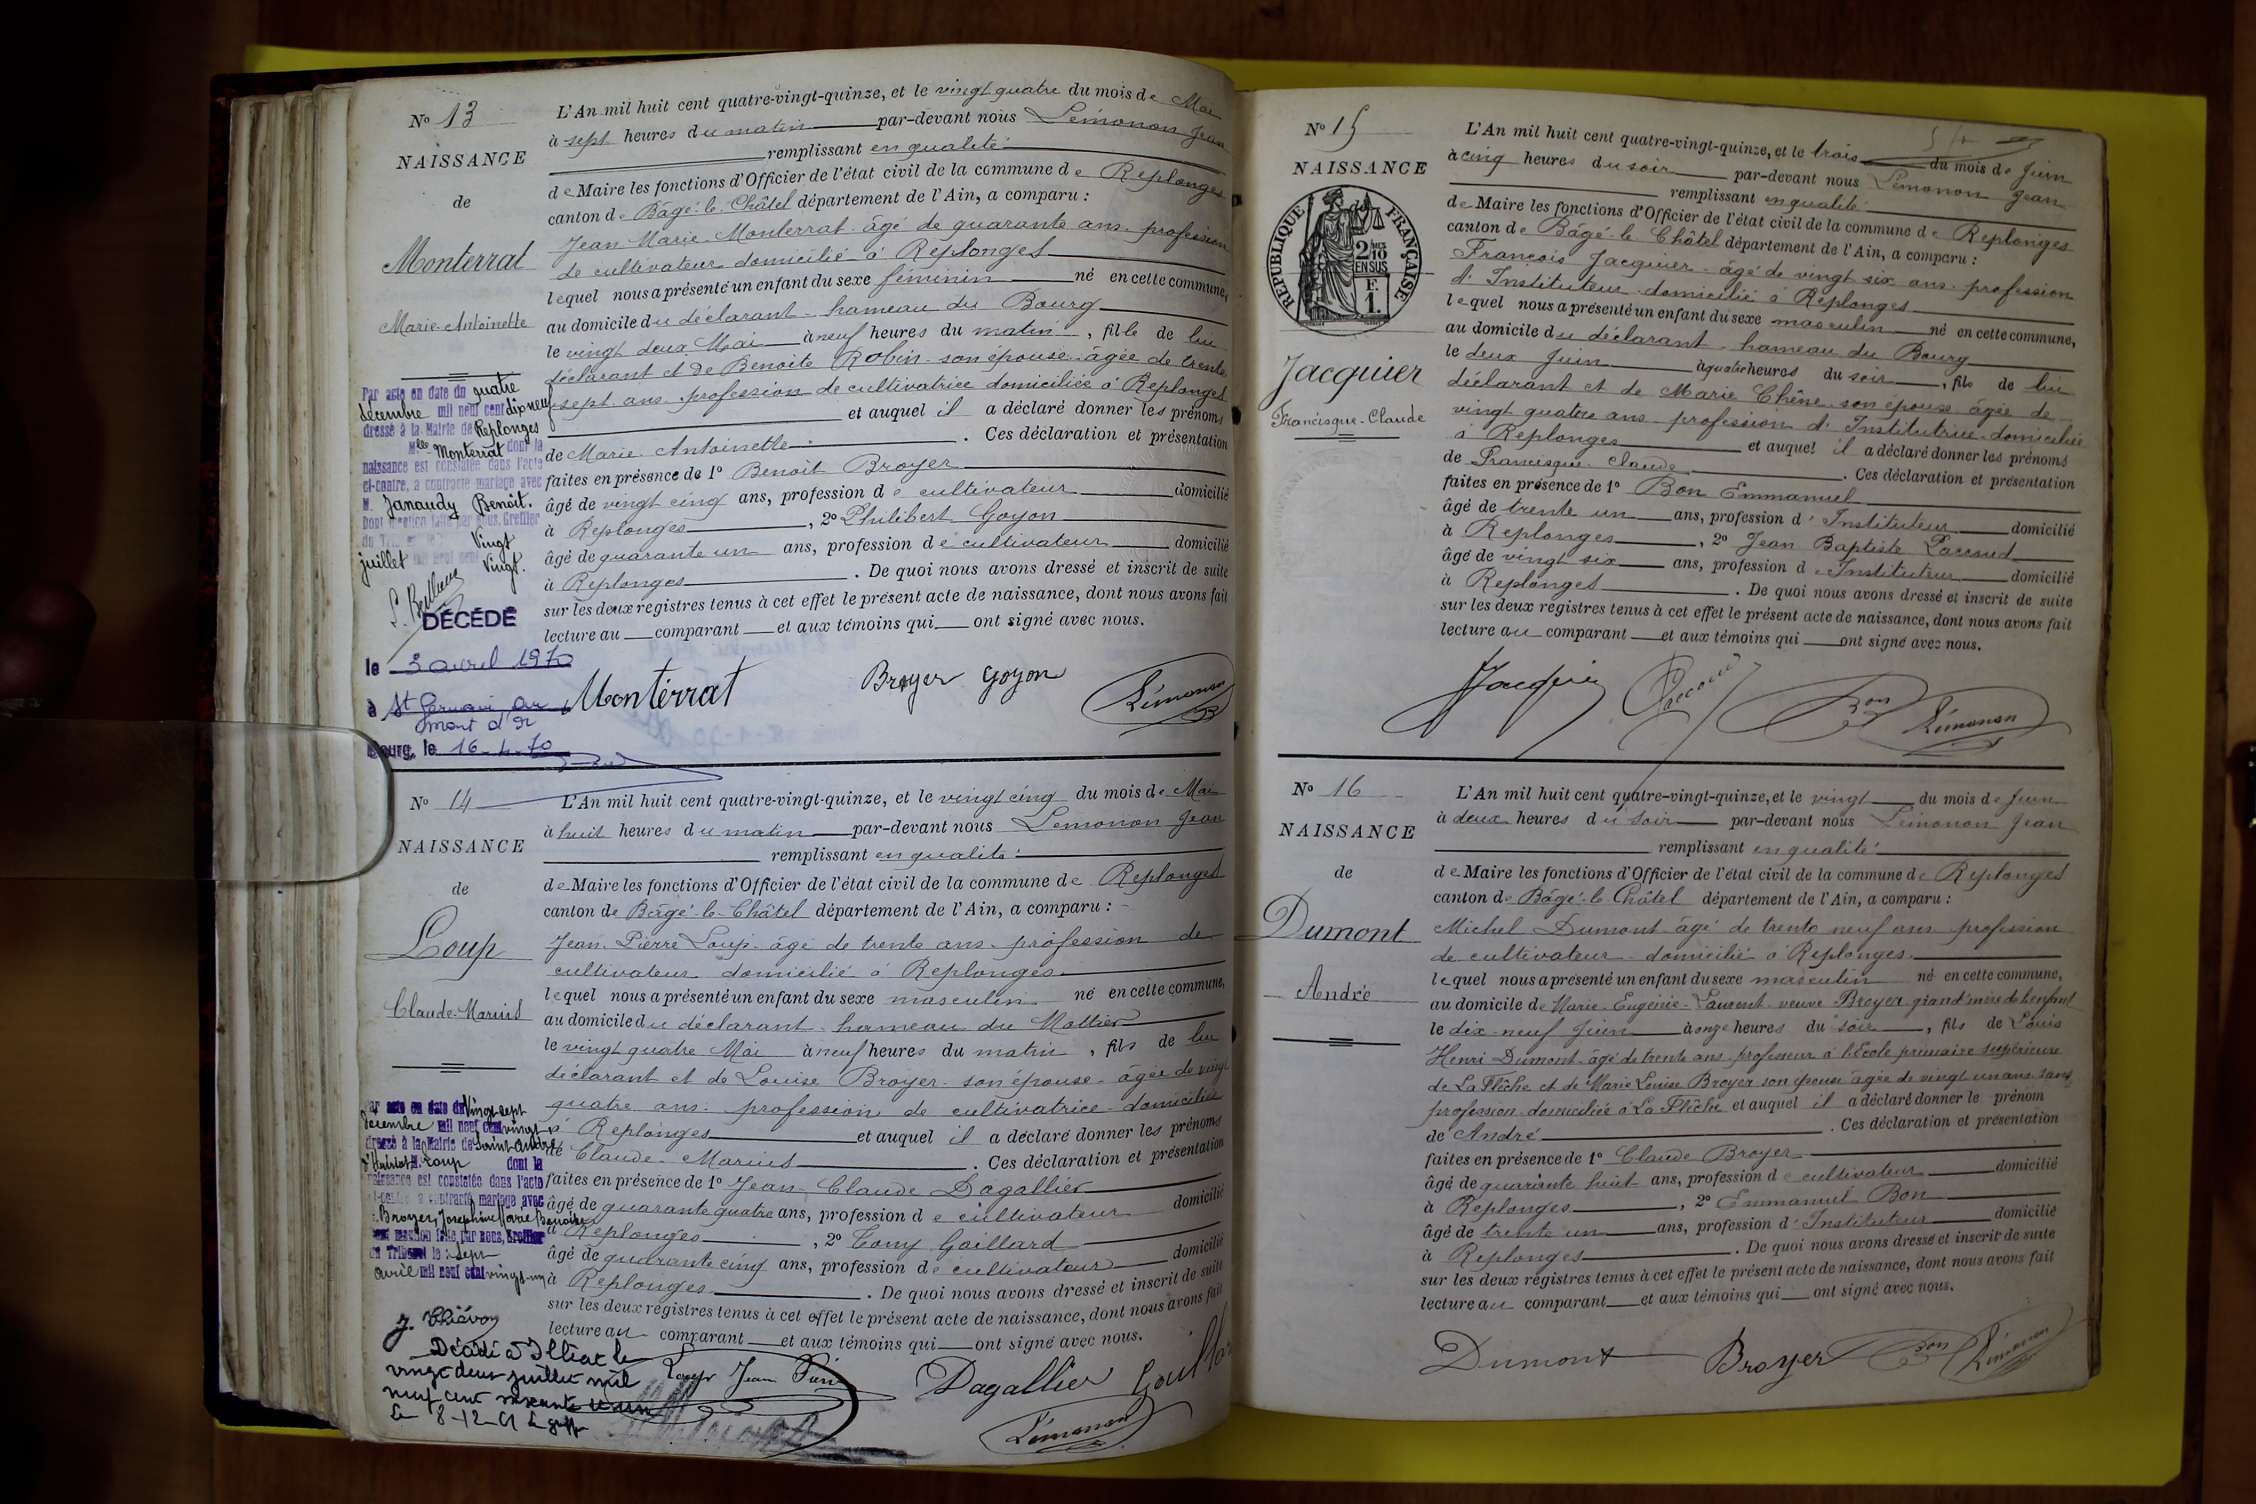 N° 13
NAISSANCE
de
Monterrat
Marie-Antoinette
L'An mil huit cent quatre-vingt-quinze, et le vingt quatre du mois de Mai
à sept heures du matin par-devant nous Lémonon Jean
remplissant en qualité
de Maire les fonctions d'Officier de l'état civil de la commune de Replonges
canton de Bâgé-le-Châtel département de l'Ain, a comparu :
Jean Marie Monterrat âgé de quarante ans profession
de cultivateur domicilié à Replonges
lequel nous a présenté un enfant du sexe féminin né en cette commune,
au domicile du déclarant hameau du Bourg
le vingt deux Mai à neuf heures du matin, fille de lui
déclarant et de Benoite Robin son épouse âgée de trente
sept ans profession de cultivatrice domiciliée à Replonges
et auquel il a déclaré donner les prénoms
de Marie Antoinette. Ces déclaration et présentation
faites en présence de 1° Benoît Broyer
âgé de vingt cinq ans, profession de cultivateur domicilié
à Replonges, 2° Philibert Goyon
âgé de quarante un ans, profession de cultivateur domicilié
à Replonges. De quoi nous avons dressé et inscrit de suite
sur les deux registres tenus à cet effet le présent acte de naissance, dont nous avons fait
lecture au comparant et aux témoins qui ont signé avec nous.
Monterrat Broyer Goyon Lémonon
Par acte en date du quatre
décembre mil neuf cent dix neuf
dressé à la Mairie de Replonges
Mlle Monterrat dont la
naissance est constatée dans l'acte
ci-contre, a contracté mariage avec
M. Janaudy Benoît.
Dont mention faite par nous, Greffier
du Vingt
juillet mil neuf cent Vingt.
DÉCÉDÉ
le 3 avril 1970
à St Germain au
mont d'or
Bourg, le 16-4-70
N° 14
NAISSANCE
de
Loup
Claude-Marius
L'An mil huit cent quatre-vingt-quinze, et le vingt cinq du mois de Mai
à huit heures du matin par-devant nous Lémonon Jean
remplissant en qualité
de Maire les fonctions d'Officier de l'état civil de la commune de Replonges
canton de Bâgé-le-Châtel département de l'Ain, a comparu :
Jean Pierre Loup âgé de trente ans profession de
cultivateur domicilié à Replonges
lequel nous a présenté un enfant du sexe masculin né en cette commune,
au domicile du déclarant hameau du Mottier
le vingt quatre Mai à neuf heures du matin, fils de lui
déclarant et de Louise Broyer son épouse âgée de vingt
quatre ans profession de cultivatrice domiciliée
à Replonges et auquel il a déclaré donner les prénoms
de Claude Marius. Ces déclaration et présentation
faites en présence de 1° Jean Claude Dagallier
âgé de quarante quatre ans, profession de cultivateur domicilié
à Replonges, 2° Tony Gaillard
âgé de quarante cinq ans, profession de cultivateur domicilié
à Replonges. De quoi nous avons dressé et inscrit de suite
sur les deux registres tenus à cet effet le présent acte de naissance, dont nous avons fait
lecture au comparant et aux témoins qui ont signé avec nous.
Loup Jean Pierre Dagallier Lémonon
Par acte en date du Vingt-sept
décembre mil neuf cent vingt
dressé à la Mairie de Saint André
d'Huiriat M. Loup dont la
naissance est constatée dans l'acte
ci-contre a contracté mariage avec
Broyer, Joséphine Marie Benoite
dont mention faite par nous, Greffier
du Tribunal le sept
avril mil neuf cent vingt-un
Décédé à Illiat le
vingt deux juillet mil
neuf cent soixante et un
Le 8-12-61
N° 15
NAISSANCE
RÉPUBLIQUE FRANÇAISE
2/10 EN SUS
F. 1.
Jacquier
Francisque-Claude
L'An mil huit cent quatre-vingt-quinze, et le trois du mois de Juin
à cinq heures du soir par-devant nous Lémonon Jean
remplissant en qualité
de Maire les fonctions d'Officier de l'état civil de la commune de Replonges
canton de Bâgé-le-Châtel département de l'Ain, a comparu :
François Jacquier âgé de vingt six ans profession
d'Instituteur domicilié à Replonges
lequel nous a présenté un enfant du sexe masculin né en cette commune,
au domicile du déclarant hameau du Bourg
le deux Juin à quatre heures du soir, fils de lui
déclarant et de Marie Chêne son épouse âgée de
vingt quatre ans profession d'Institutrice domiciliée
à Replonges et auquel il a déclaré donner les prénoms
de Francisque Claude. Ces déclaration et présentation
faites en présence de 1° Bon Emmanuel
âgé de trente un ans, profession d'Instituteur domicilié
à Replonges, 2° Jean Baptiste Paccoud
âgé de vingt six ans, profession d'Instituteur domicilié
à Replonges. De quoi nous avons dressé et inscrit de suite
sur les deux registres tenus à cet effet le présent acte de naissance, dont nous avons fait
lecture au comparant et aux témoins qui ont signé avec nous.
Jacquier Paccoud Bon Lémonon
N° 16
NAISSANCE
de
Dumont
André
L'An mil huit cent quatre-vingt-quinze, et le vingt du mois de Juin
à deux heures du soir par-devant nous Lémonon Jean
remplissant en qualité
de Maire les fonctions d'Officier de l'état civil de la commune de Replonges
canton de Bâgé-le-Châtel département de l'Ain, a comparu :
Michel Dumont âgé de trente neuf ans profession
de cultivateur domicilié à Replonges
lequel nous a présenté un enfant du sexe masculin né en cette commune,
au domicile de Marie Eugénie Laurent veuve Broyer grand'mère de l'enfant
le dix-neuf Juin à onze heures du soir, fils de Louis
Henri Dumont âgé de trente ans professeur à l'Ecole primaire supérieure
de La Flêche et de Marie Louise Broyer son épouse âgée de vingt un ans sans
profession domiciliée à La Flêche et auquel il a déclaré donner le prénom
de André. Ces déclaration et présentation
faites en présence de 1° Claude Broyer
âgé de quarante huit ans, profession de cultivateur domicilié
à Replonges, 2° Emmanuel Bon
âgé de trente un ans, profession d'Instituteur domicilié
à Replonges. De quoi nous avons dressé et inscrit de suite
sur les deux registres tenus à cet effet le présent acte de naissance, dont nous avons fait
lecture au comparant et aux témoins qui ont signé avec nous.
Dumont Broyer Bon Lémonon